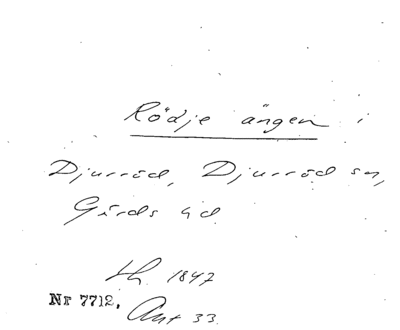 Rödje ängen i
Djurröd, Djurröd sn,
Gärds hd
th. 1847
Nr 7712. Ant 33.